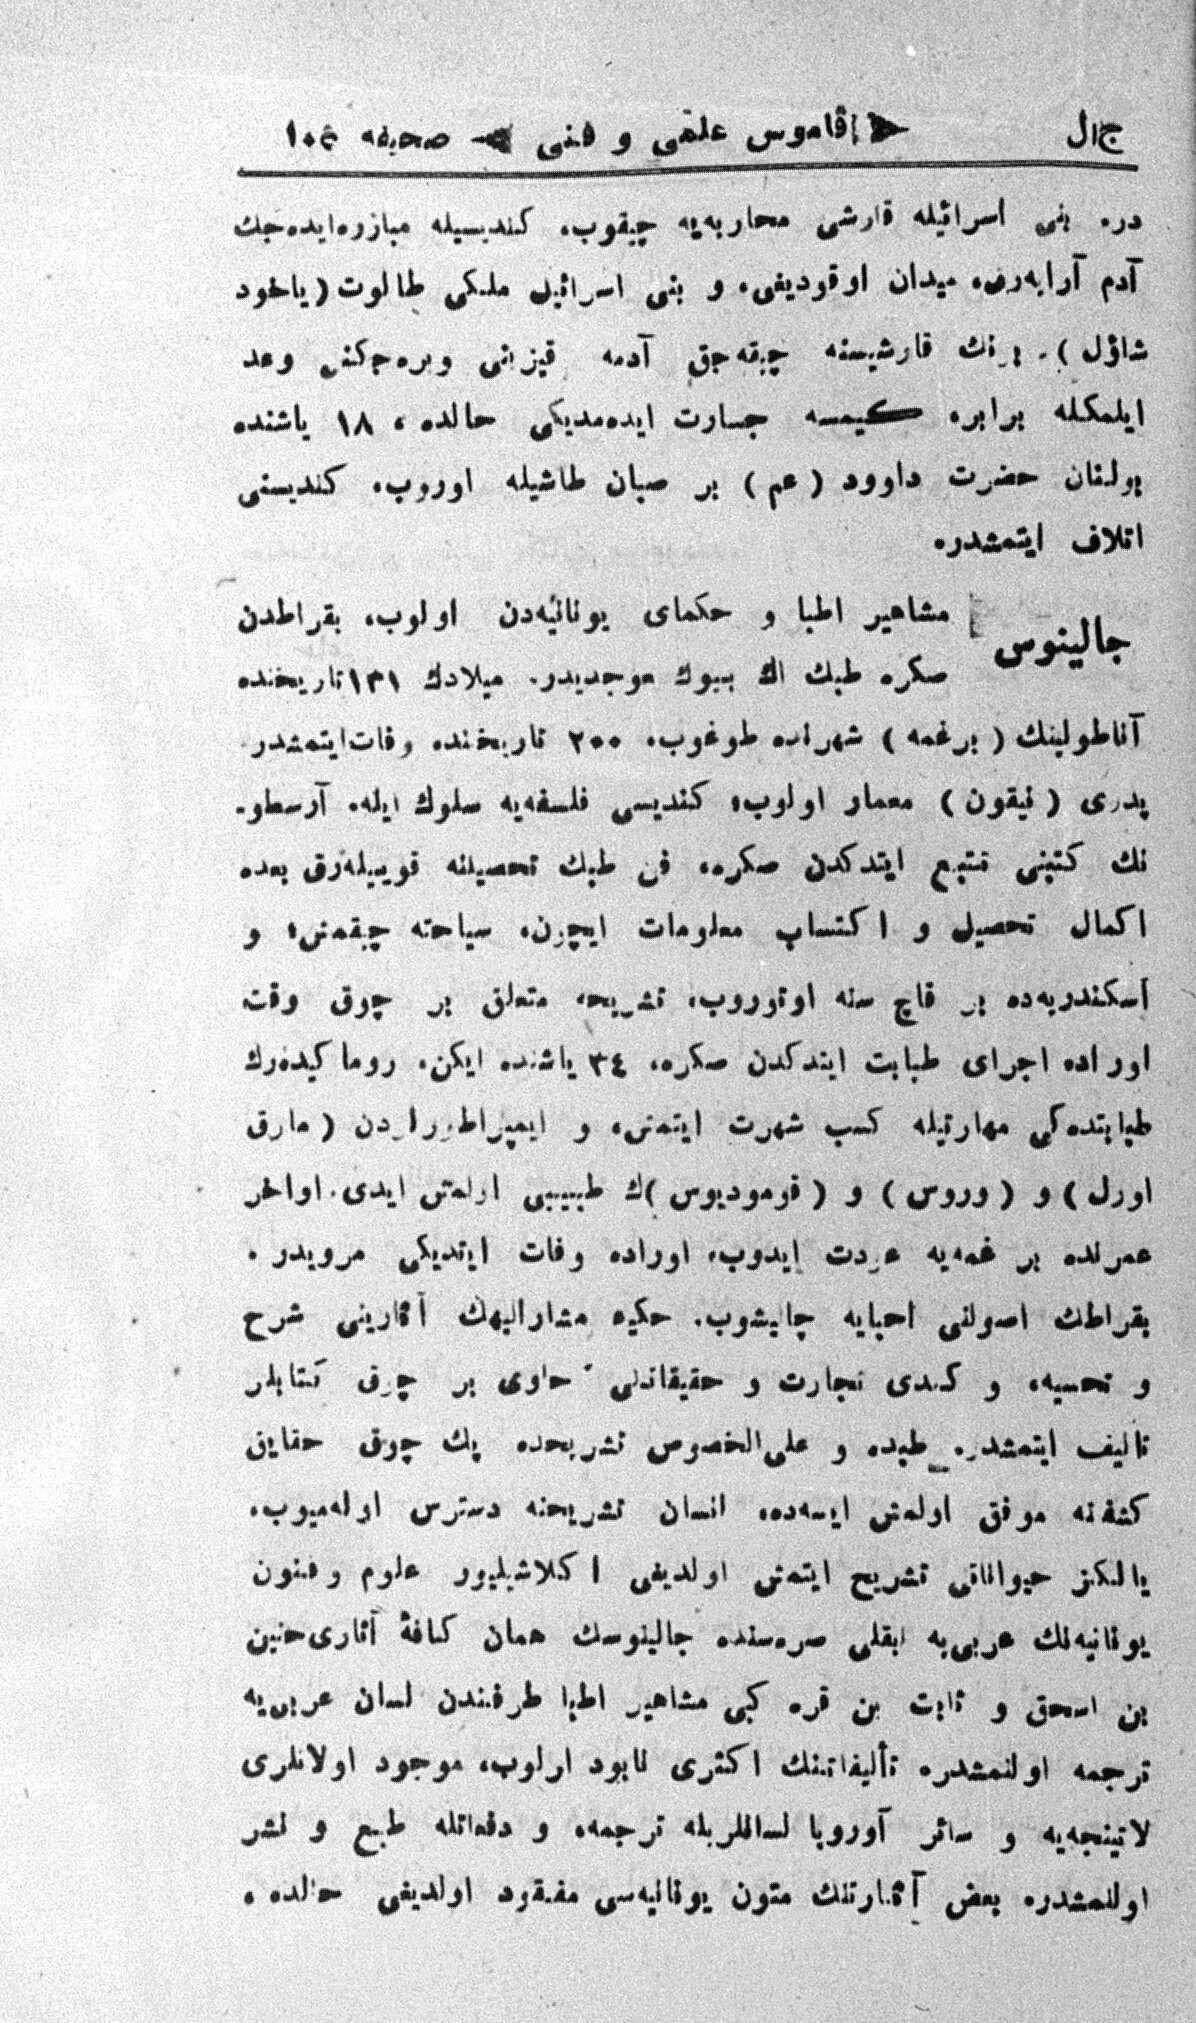 جال ﴿ قاموس علمی و فنی ﴾ صحیفه ١٠٤
دره بنی اسرائیله قارشی محاربه‌یه چیقوب، كندیسیله مبارزه ایده‌جك
آدم آرایه‌رق، میدان اوقودیغی، و بنی اسرائیل ملكی طالوت (یاخود
شاؤل)، بونك قارشیسنه چیقه‌جق آدمه قیزینی ویره‌جكنی وعد
ایلمكله برابره كیمسه جسارت ایده‌مدیكی حالده، ١٨ یاشنده
بولنان حضرت داوود (عم) بر صپان طاشیله اوروب، كندیسنی
اتلاف ایتمشدر.
جالینوس
مشاهیر اطبا و حكمای یونانیه‌دن اولوب، بقراطدن
صكره طبك اك بیوك موجدیدر. میلادك ١٣١ تاریخنده
آناطولینك (برغمه) شهرنده طوغوب، ٢٠٠ تاریخنده وفات ایتمشدر.
پدری (نیقون) معمار اولوب، كندیسی فلسفه‌یه سلوك ایله، آرسطو-
نك كتبنی تتبع ایتدكدن صكره، فن طبك تحصیلنه قوییله‌رق بعده
اكمال تحصیل و اكتساب معلومات ایچون، سیاحته چیقمش، و
اسكندریه‌ده بر قاچ سنه اوتوروب، تشریحه متعلق بر چوق وقت
اوراده اجرای طبابت ایتدكدن صكره، ٣٤ یاشنده ایكن، روما كیده‌رك
طبابتده‌كی مهارتیله كسب شهرت ایتمش، و ایمپراطورلردن (مارق
اورل) و (وروس) و (قومودیوس)ك طبیبی اولمش ایدی. اواخر
عمرنده برغمه‌یه عودت ایدوب، اوراده وفات ایتدیكی مرویدر.
بقراطك اصولنی احیایه چالیشوب، حكیم مشارالیهك آثارینی شرح
و تحشیه، و كندی تجارب و حقیقاتنی حاوی بر چوق كتابلر
تألیف ایتمشدر. طبده و علی‌الخصوص تشریحده پك چوق حقایق
كشفنه موفق اولمش ایسه‌ده، انسان تشریحنه دسترس اوله‌میوب،
یالكز حیواناتی تشریح ایتمش اولدیغی اكلاشیلیور علوم وفنون
یونانیه‌نك عربی‌یه نقلی صره‌سنده جالینوسك همان كافهٔ آثاری حنین
بن اسحق و ثابت بن قره كبی مشاهیر اطبا طرفندن لسان عربی‌یه
ترجمه اولنمشدره تألیفاتنك اكثری نابود اولوب، موجود اولانلری
لاتینجه‌یه و سائر آوروپا لسانلریله ترجمه، و دفعاتله طبع و نشر
اولنمشدره بعض آثارنك متون یونانیه‌سی مفقود اولدیغی حالده،